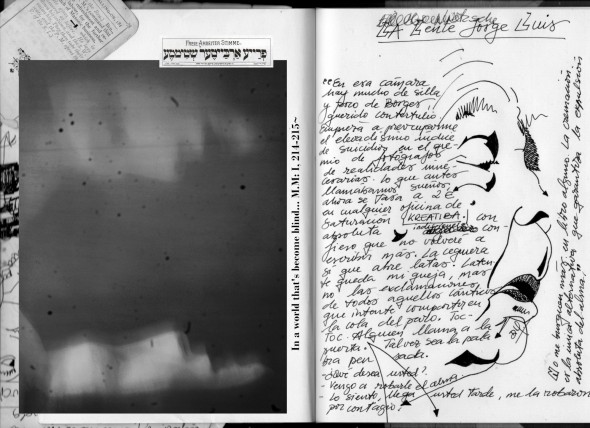 FREIE ARBEITER STIMME.
פרייע ארבייטער שטימע
In a world that's become blind... M.M: I. 214-215~
La Lente Jorge Luis
"En esa cámara
hay mucho de silla
y poco de Borges,
querido contertulio.
Empieza a preocuparme
el elevadísimo índice
de suicidios en el gre-
mio de fotógrafos
de realidades inne-
cesarias. Lo que antes
llamábamos sueños,
ahora se pasa a 2€
en cualquier oficina de
saturación KREATIBA. con
absoluta con-
fieso que no volveré a
escribir más. La ceguera
sí que abre latas. Laten-
te queda mi queja, mas
no las exclamaciones
de todos aquellos cánticos
que intenté compartir en
la cola del paro. Toc-
Toc. Alguien llama a la
puerta. Talvez sea la pala
bra pen sada.
- ¿Qué desea usted?
- Vengo a robarle el alma.
- Lo siento, llega usted tarde, me la robaron
por contagio.
No me busquen más en libro alguno. La cremación
es la única alternativa que garantiza la expulsión
absoluta del alma."